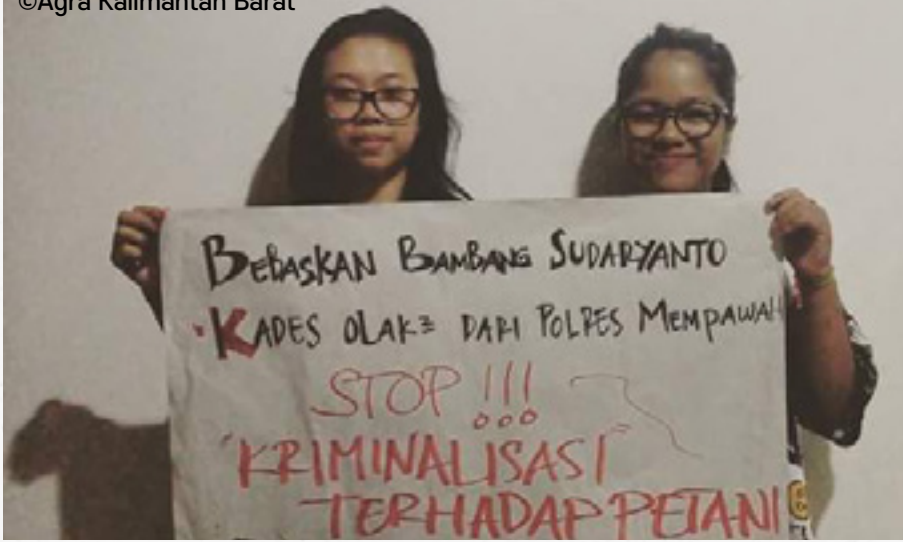 ©Agra Kalimantan Barat
BEBASKAN BAMBANG SUDARYANTO
·KADES OLAK² DARI POLRES MEMPAWAH
STOP !!!
"KRIMINALISASI"
TERHADAP PETANI